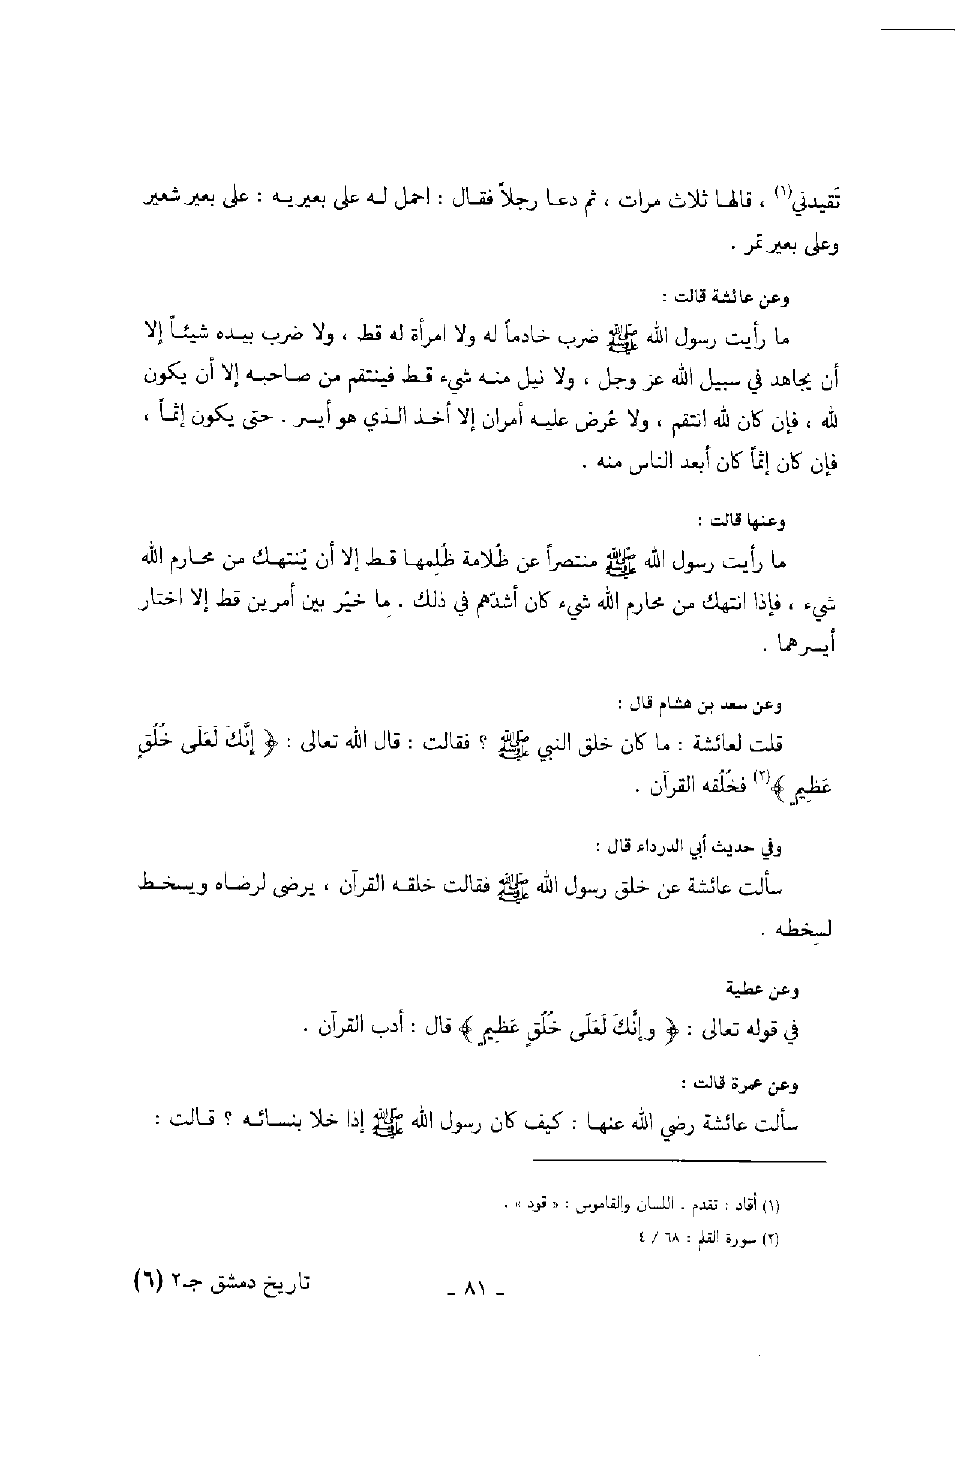 تَقيدني(١) ، قالها ثلاث مرات ، ثم دعا رجلاً فقال : احمل له على بعيريه : على بعير شعير
وعلى بعير تمر .
وعن عائشة قالت :
ما رأيت رسول الله ﷺ ضرب خادماً له ولا امرأة له قط ، ولا ضرب بيده شيئاً إلا
أن يجاهد في سبيل الله عز وجل ، ولا نيل منه شيء قط فينتقم من صاحبه إلا أن يكون
لله ، فإن كان لله انتقم ، ولا عُرض عليه أمران إلا أخذ الذي هو أيسر . حتى يكون إثماً ،
فإن كان إثماً كان أبعد الناس منه .
وعنها قالت :
ما رأيت رسول الله ﷺ منتصراً عن ظُلامة ظُلِمها قط إلا أن يُنتهك من محارم الله
شيء ، فإذا انتهك من محارم الله شيء كان أشدّهم في ذلك . ما خيّر بين أمرين قط إلا اختار
أيسرهما .
وعن سعد بن هشام قال :
قلت لعائشة : ما كان خلق النبي ﷺ ؟ فقالت : قال الله تعالى : ﴿ إنَّكَ لَعَلَى خُلُقٍ
عَظِيمٍ ﴾(٢) فخُلُقه القرآن .
وفي حديث أبي الدرداء قال :
سألت عائشة عن خلق رسول الله ﷺ فقالت خلقه القرآن ، يرضى لرضاه ويسخط
لسِخطه .
وعن عطية
في قوله تعالى : ﴿ وإنَّكَ لَعَلَى خُلُقٍ عَظِيمٍ ﴾ قال : أدب القرآن .
وعن عمرة قالت :
سألت عائشة رضي الله عنها : كيف كان رسول الله ﷺ إذا خلا بنسائه ؟ قالت :
(١) أقاد : تقدم . اللسان والقاموس : « قود » .
(٢) سورة القلم : ٦٨ / ٤
- ٨١ -
تاريخ دمشق جـ٢ (٦)